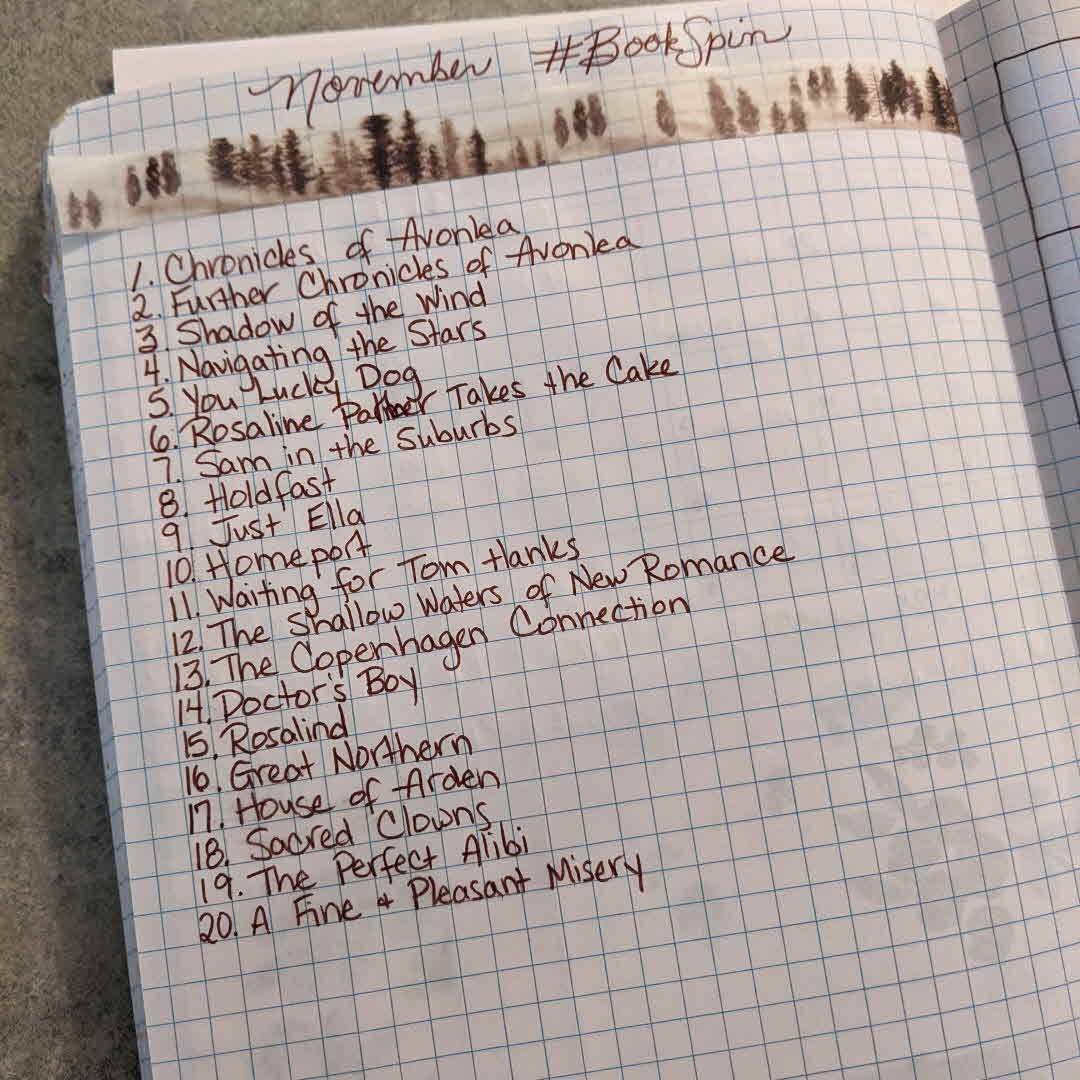 November #BookSpin
1. Chronicles of Avonlea
2. Further Chronicles of Avonlea
3. Shadow of the Wind
4. Navigating the Stars
5. You Lucky Dog
6. Rosaline Palmer Takes the Cake
7. Sam in the Suburbs
8. Holdfast
9. Just Ella
10. Homeport
11. Waiting for Tom Hanks
12. The Shallow Waters of New Romance
13. The Copenhagen Connection
14. Doctor's Boy
15. Rosalind
16. Great Northern
17. House of Arden
18. Sacred Clowns
19. The Perfect Alibi
20. A Fine & Pleasant Misery